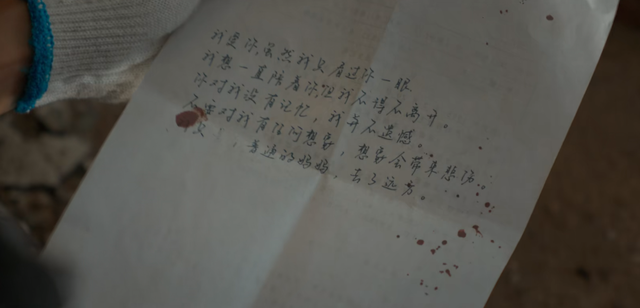 我爱你,虽然我只看过你一眼
我想一直陪着你但我不得不离开。
你对我没有记忆,我并不遗憾。
不要对我有任何想象,想象会带来悲伤。
,的妈妈,去了远方。